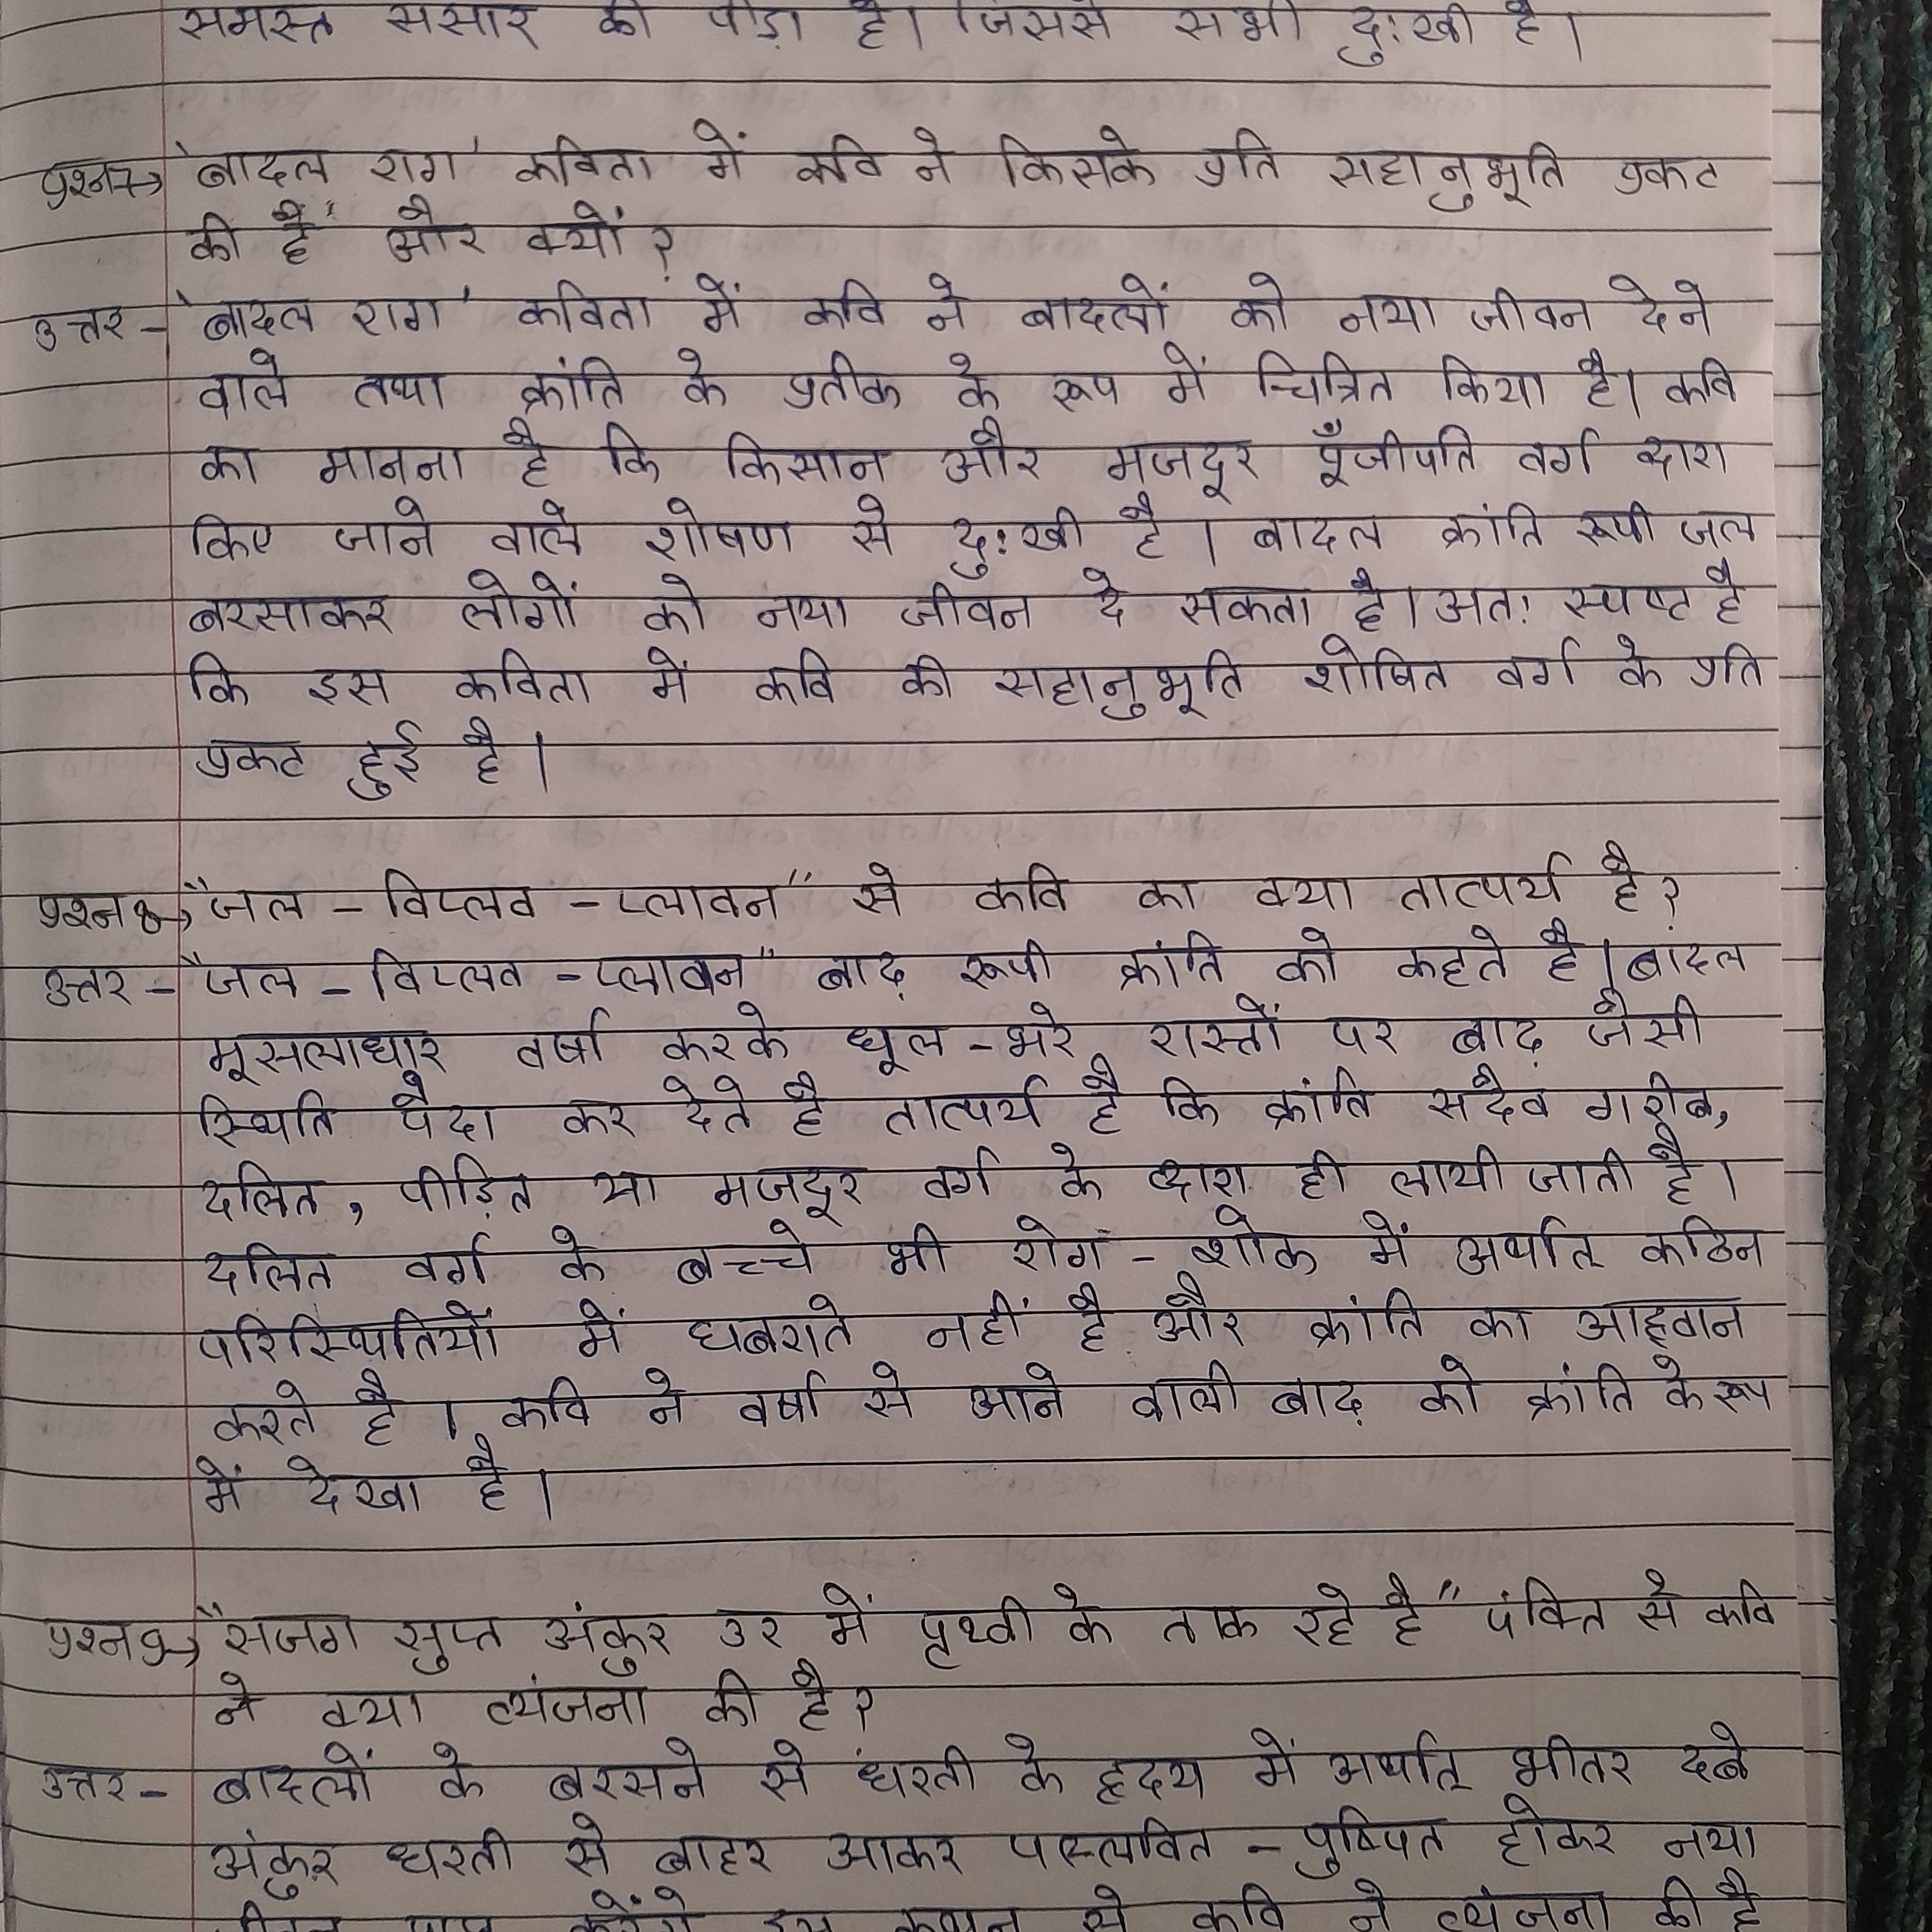 समस्त संसार की पीड़ा है। जिससे सभी दुःखी है।
प्रश्न7→ 'बादल राग' कविता में कवि ने किसके प्रति सहानुभूति प्रकट
की है" और क्यों?
उत्तर - 'बादल राग' कविता में कवि ने बादलों को नया जीवन देने
वाले तथा क्रांति के प्रतीक के रूप में चित्रित किया है। कवि
का मानना है कि किसान और मजदूर पूँजीपति वर्ग द्वारा
किए जाने वाले शोषण से दुःखी है। बादल क्रांति रूपी जल
बरसाकर लोगों को नया जीवन दे सकता है। अतः स्पष्ट है
कि इस कविता में कवि की सहानुभूति शोषित वर्ग के प्रति
प्रकट हुई है।
प्रश्न8→ "जल - विप्लव - प्लावन" से कवि का क्या तात्पर्य है?
उत्तर - "जल - विप्लव - प्लावन" बाढ़ रूपी क्रांति को कहते है। बादल
मूसलाधार वर्षा करके धूल - भरे रास्तों पर बाढ़ जैसी
स्थिति पैदा कर देते है तात्पर्य है कि क्रांति सदैव गरीब,
दलित, पीड़ित या मजदूर वर्ग के द्वारा ही लायी जाती है।
दलित वर्ग के बच्चे भी रोग - शोक में अर्थात् कठिन
परिस्थितियों में घबराते नहीं है और क्रांति का आह्वान
करते है। कवि ने वर्षा से आने वाली बाढ़ को क्रांति के रूप
में देखा है।
प्रश्न9→ "सजग सुप्त अंकुर उर में पृथ्वी के ताक रहे है" पंक्ति से कवि
ने क्या व्यंजना की है?
उत्तर - बादलों के बरसने से धरती के हृदय में अर्थात् भीतर दबे
अंकुर धरती से बाहर आकर पल्लवित - पुष्पित होकर नया
करेंगे इस कथन से कवि ने व्यंजना की है